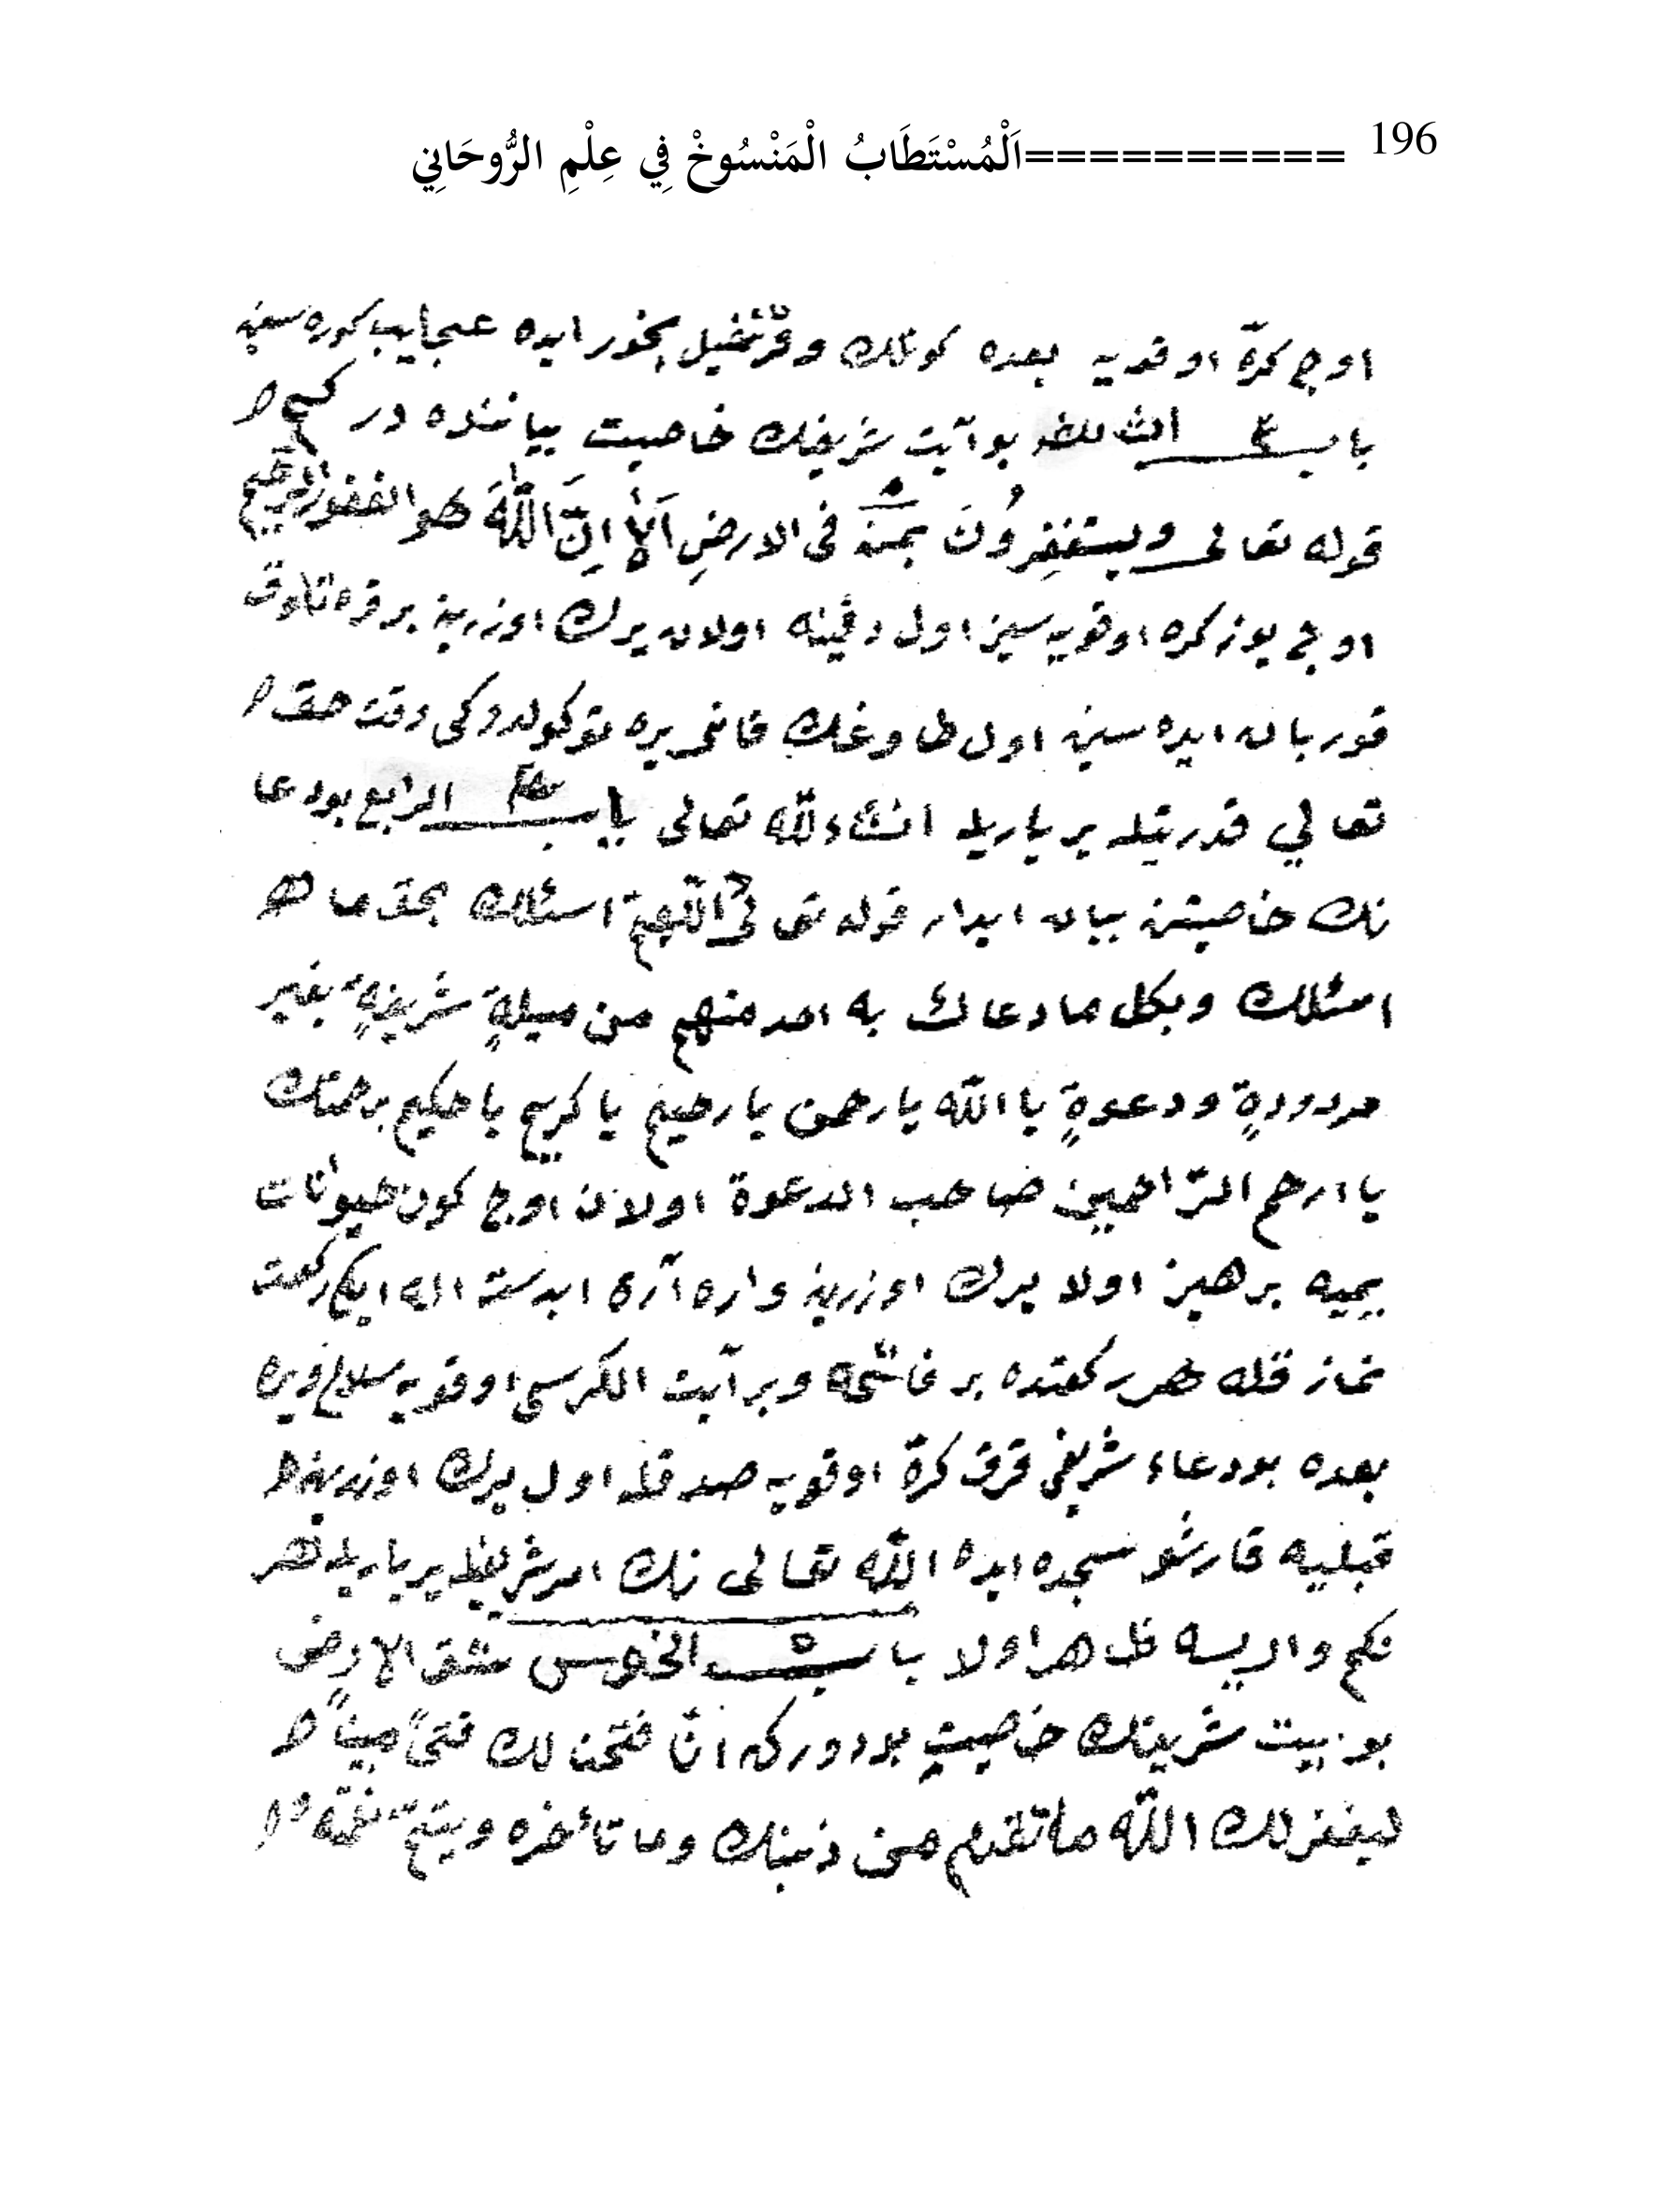 196 ==========اَلْمُسْتَطَابُ الْمَنْسُوخْ فِي عِلْمِ الرُّوحَانِي
اوج كرّة اوقويه بعده كونلك وقرنفيل بخور ايده عجايب كوره سين
باب الثالث بو آيت شريفك خاصيت بياننده در
قوله تعالى ويستغفِرُونَ لمن فى الارضِ اَلاٰ اِنَّ اللّٰهَ هو الغفور الرحيم
اوج يوز كره اوقويه سين اول دفينه اولان يرك اوزرينه بر قره تاوق
قوربان ايده سين اول طاوغك قانى يره توكولدوكى وقت حق
تعالي قدرتيله ير ياريله انشاءالله تعالى باب الرابع بو دعا
نك خاصيتن بيان ايدر قوله تعالى اللّهمّ اسئلك بحق ما هو
اسئلك وبكل ما دعا لك به احد منهم من شريفةٍ بغير
مردودةٍ ودعوةٍ يا اللّه يا رحمن يا رحيم يا كريم يا حكيم برحمتك
يا ارحم الرّاحمين صاحب الدعوة اولان اوج كون حيوانات
يميه برهيز اولا يرك اوزرينه واره آره ابدست اله ايكى ركعت
نماز قله هر ركعتده بر فاتحة وبر آيت الكرسى اوقويه سلام ويره
بعده بو دعاء شريفى قرق كرة اوقويه صدقله اول يرك اوزرينه
قبليه قارشو سجده ايده اللّه تعالى نك امر شريفيله ير ياريله هر
نكم وار يسه ظاهر اولا باب الخامس شق الارض
بو بيت شريفك خاصيت بودوركه انّا فتحنا لك فتحاً مبيناً
ليغفر لك اللّه ما تقدم من ذنبك وما تأخره ويتمّ نعمته